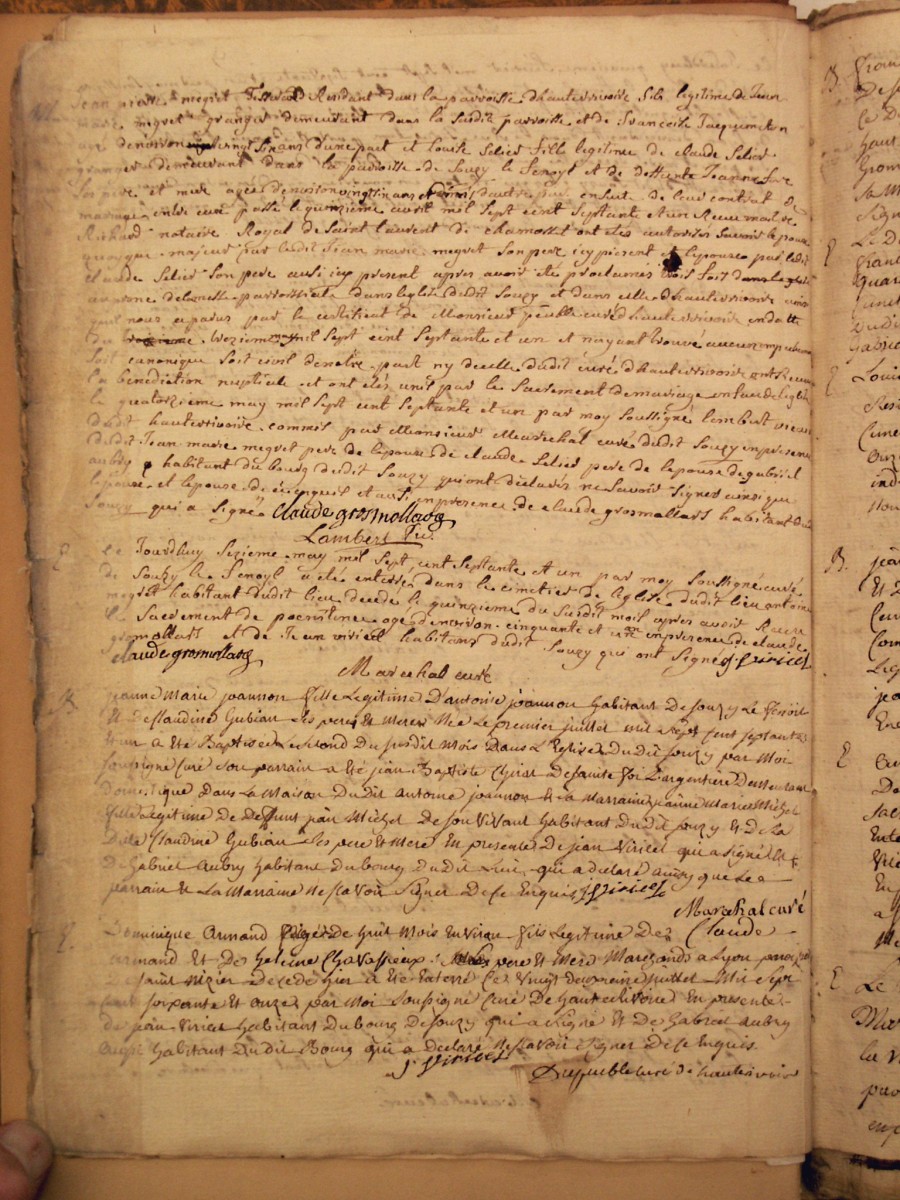 M. Jean marie megret Tisserand Residant dans la parroisse dhauterivoire fils legitime de Jean
marie megret granger demeurant dans la susdit parroisse et de francoise Jacquemeton
age denviron vingt six ans dune part et Louise Selier fille legitime de claude Selier
granger demeurant dans la parroisse de Souzy le Senoyl et de deffunte Jeanne
Son pere et mere agee denviron vingt ans dautre part en suite de leur contrat de
mariage entre eux passé le quinzieme avril mil sept cent septante et un Receu maitre
Richard notaire Royal de Saint Laurent de chamosset ont eté autorises savoir lepoux
quoyque majeur par ledit Jean marie megret son pere icy present et lepouse par ledit
claude Selier son pere aussi icy present apres avoir été proclames trois fois dans leglise
au prone de la messe parroissiale dans leglise dudit Souzy et dans celle dhauterivoire ainsi
quil nous a parus par le certificat de Monsieur peuble curé dhauterivoire en datte
du treizieme may mil sept cent septante et un et nayant trouvé aucun empechement
soit canonique soit civil de notre part ny de celle dudit curé dhauterivoire ont Receu
la benediction nuptiale et ont etés unit par le Sacrement de mariage en face de leglise
le quatorzieme may mil sept cent septante et un par moy soussigné Lambert vicaire
dudit hauterivoire commis par Monsieur Marechal curé dudit Souzy en presence
dudit Jean marie megret pere de lepoux de claude Selier pere de lepouse de gabriel
aubry habitant du bourg dudit Souzy qui ont déclarés ne Savoir Signer ainsi que
lepoux et lepouse de ce enquil et aussi en presence de claude grosmollard habitant du
Souzy qui a Signé claude grosmollard
Lambert vic.
E Le Jourdhuy Sezieme may mil sept cent septante et un par moy soussigné curé
de Souzy le Senoyl a eté enterré dans le cimetier de leglise dudit lieu antoine
megret habitant dudit lieu decedé le quinzieme du susdit mois apres avoir Receu
le Sacrement de poenitence agé denviron cinquante et un ans en presence de claude
grosmollard et de Jean viricel habitans dudit Souzy qui ont Signé J. viricel
claude grosmollard
Marechal curé
B. jeanne Marie joannon fille Legitime D'antoine joannon habitant De Souzy Le Senoil
Et De Claudine Gubian Ses pere Et Mere Née Le premier juillet mil sept cent septante
Et un a Eté Baptisée Le Second Du susdit Mois Dans L'Eglise Dudit Souzy par Moi
Soussigné Curé Son parrain a Eté jean Baptiste De Sainte Foi L'argentiere Demeurant
Domestique Dans La Maison Dudit Antoine joannon Et La Marraine jeanne Marie Michel
fille Legitime De Deffunt jean Michel De Son Vivant habitant Dudit Souzy Et De La
Dite Claudine Gubian Ses pere Et Mere En presence De jean Viricel qui a Signé Et
De Gabriel Aubry habitans Du bourg Dudit Lieu qui a declaré Ainsy que Le
parrain Et La Marraine Ne Savoir Signer De Ce Enquis J. Viricel
Marechal curé
E. Dominique Armand agé De huit Mois Environ fils Legitime De Claude
Armand Et De Helene Chavassieux Ses pere Et Mere Marchands a Lyon paroisse
De Saint Nizier decedé hier a Eté Enterré Ce Vingt deuxieme juillet Mil Sept
cent soixante Et Onze par Moi Soussigné Curé De Hauterivoire En presence
De jean Viricel habitant Du bourg De Souzy qui a Signé Et De Gabriel Aubry
aussi habitant Dudit Bourg qui a declaré Ne Savoir Signer De Ce Enquis
J Viricel
Dupeuble curé de hauterivoire